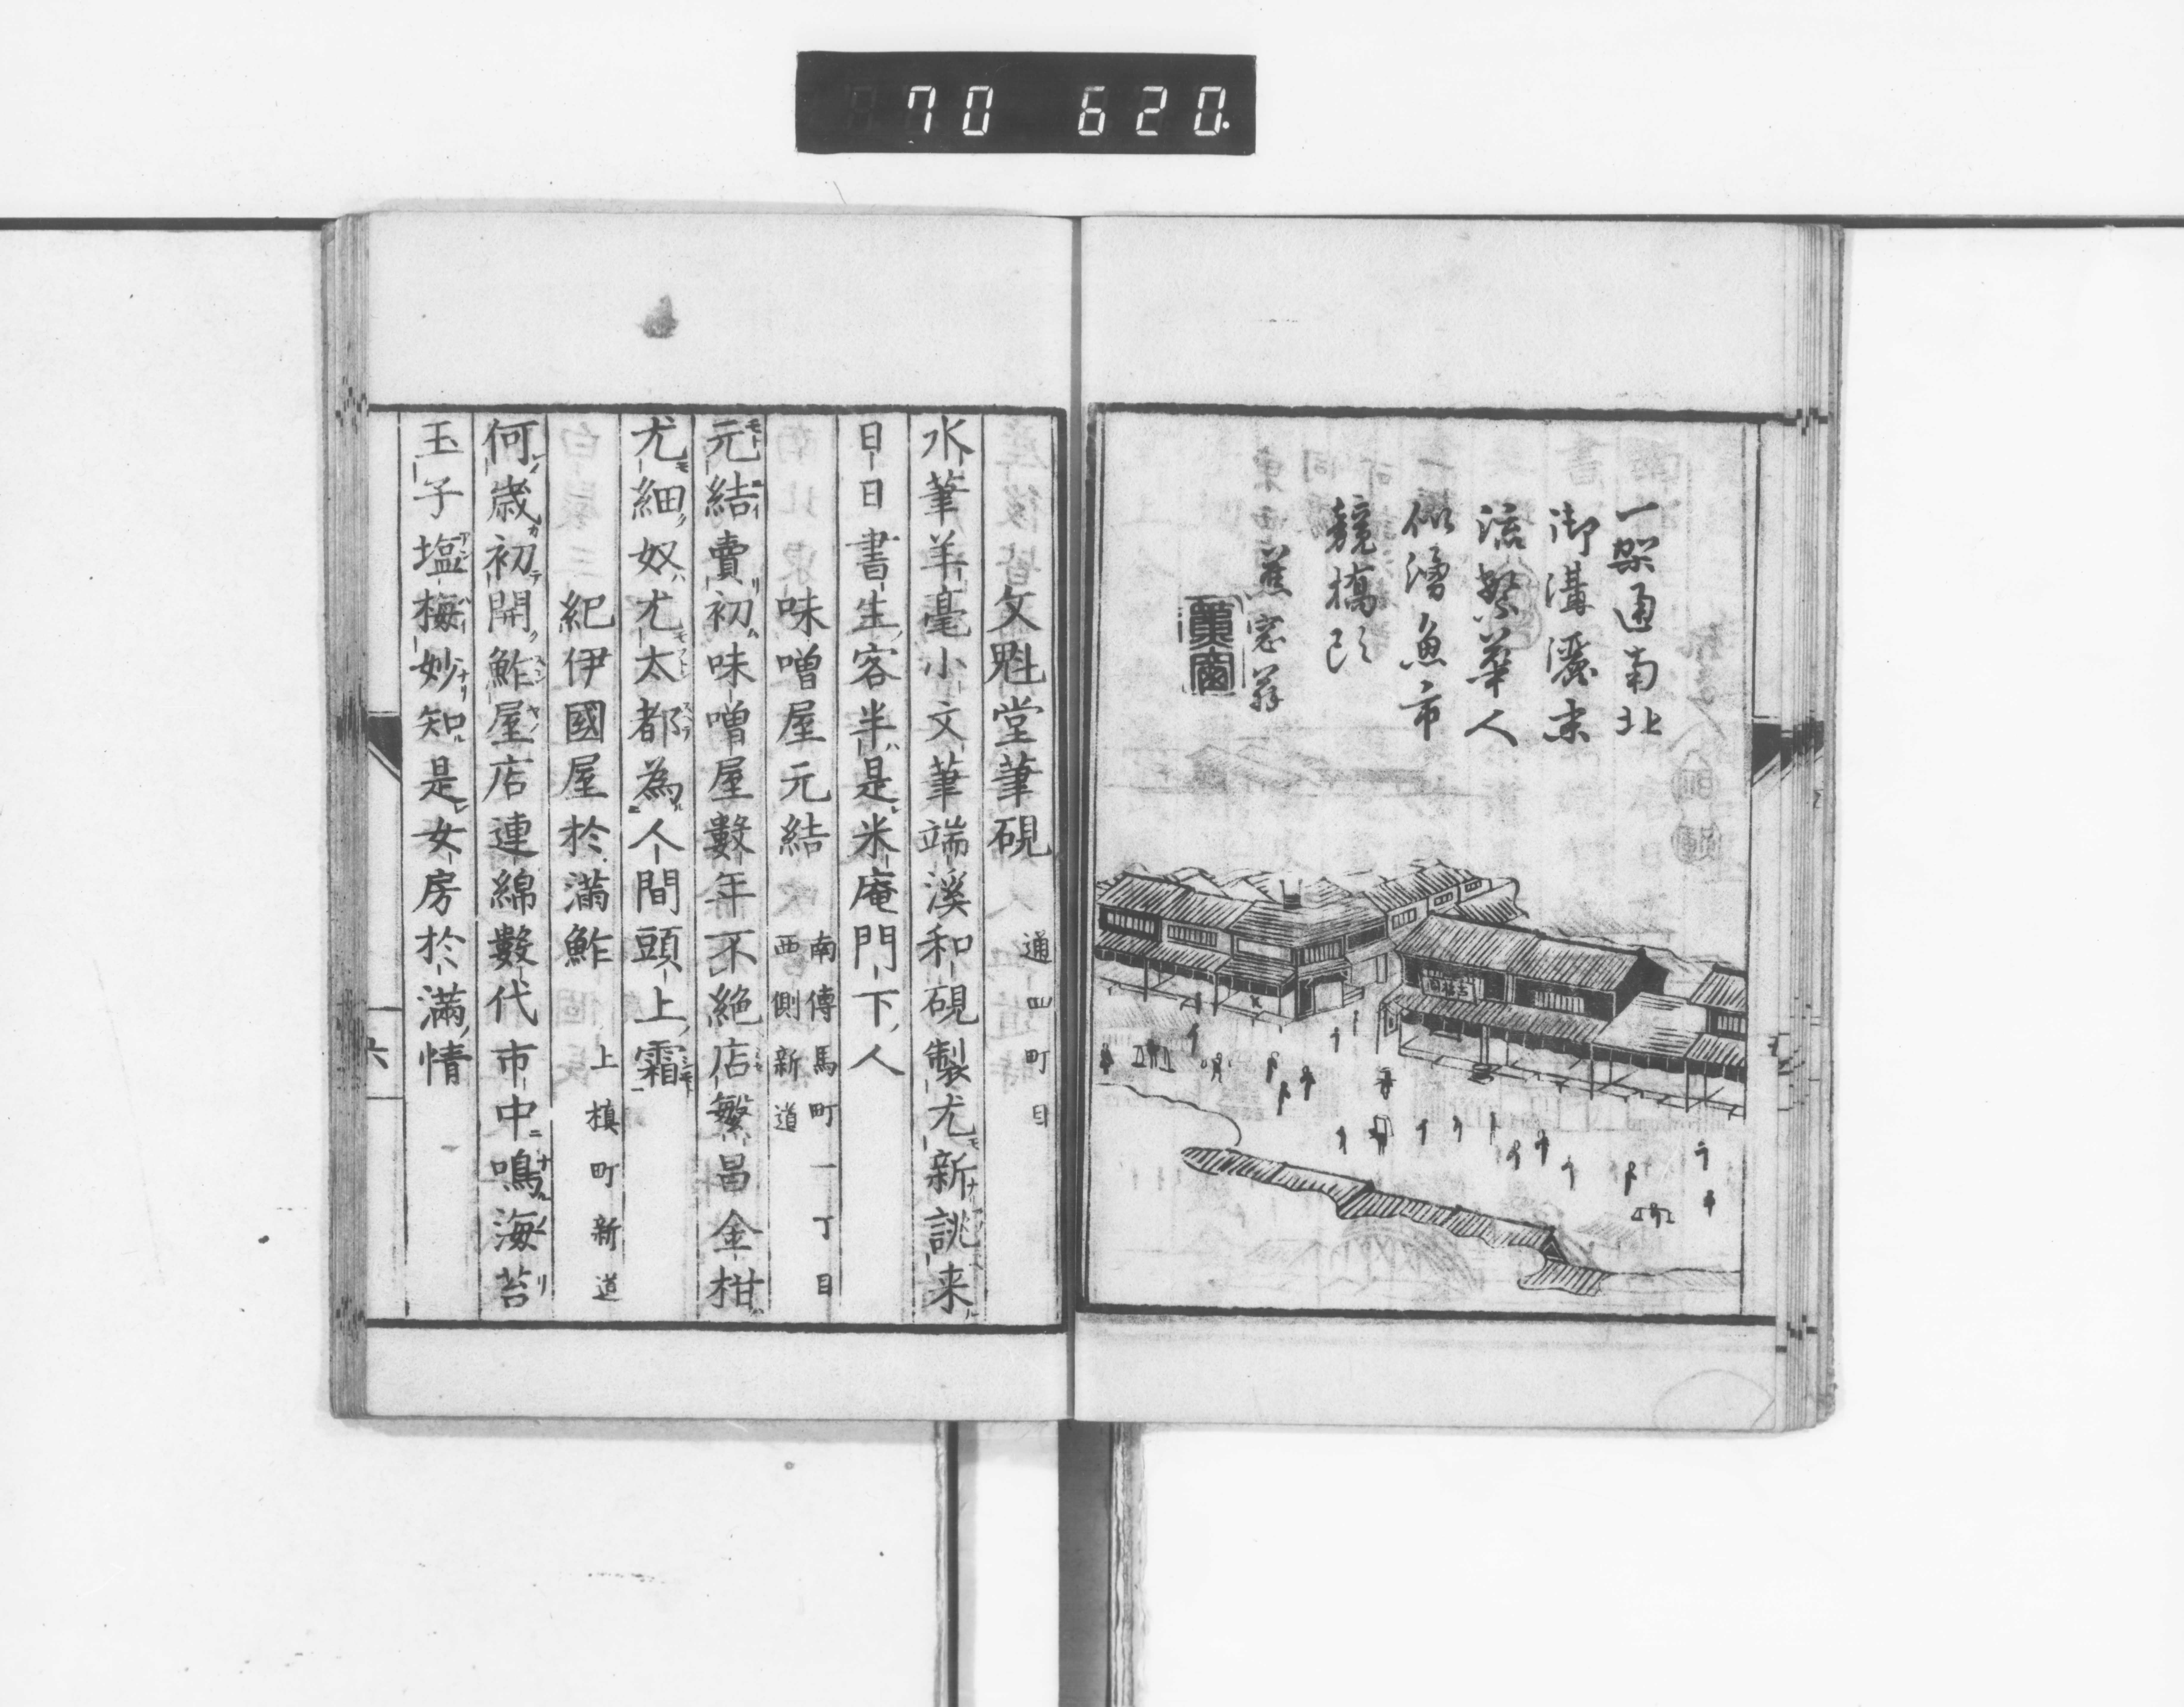 70 620.
一架通南北
御溝灑末
流繁華人
似湧魚市
競橋頭
蕉窓翁
文魁堂筆硯 通四町目
水筆羊毫小文筆端溪和硯製尤新誂来
日日書生客半是米庵門下人
味噌屋元結 南傳馬町一丁目西側新道
元結賣初味噌屋數年不絶店繁昌金柑
尤細奴尤太都為人間頭上霜
紀伊國屋於滿鮓 上槙町新道
何歳初開鮓屋店連綿數代市中鳴海苔
玉子塩梅妙知是女房於滿情
六